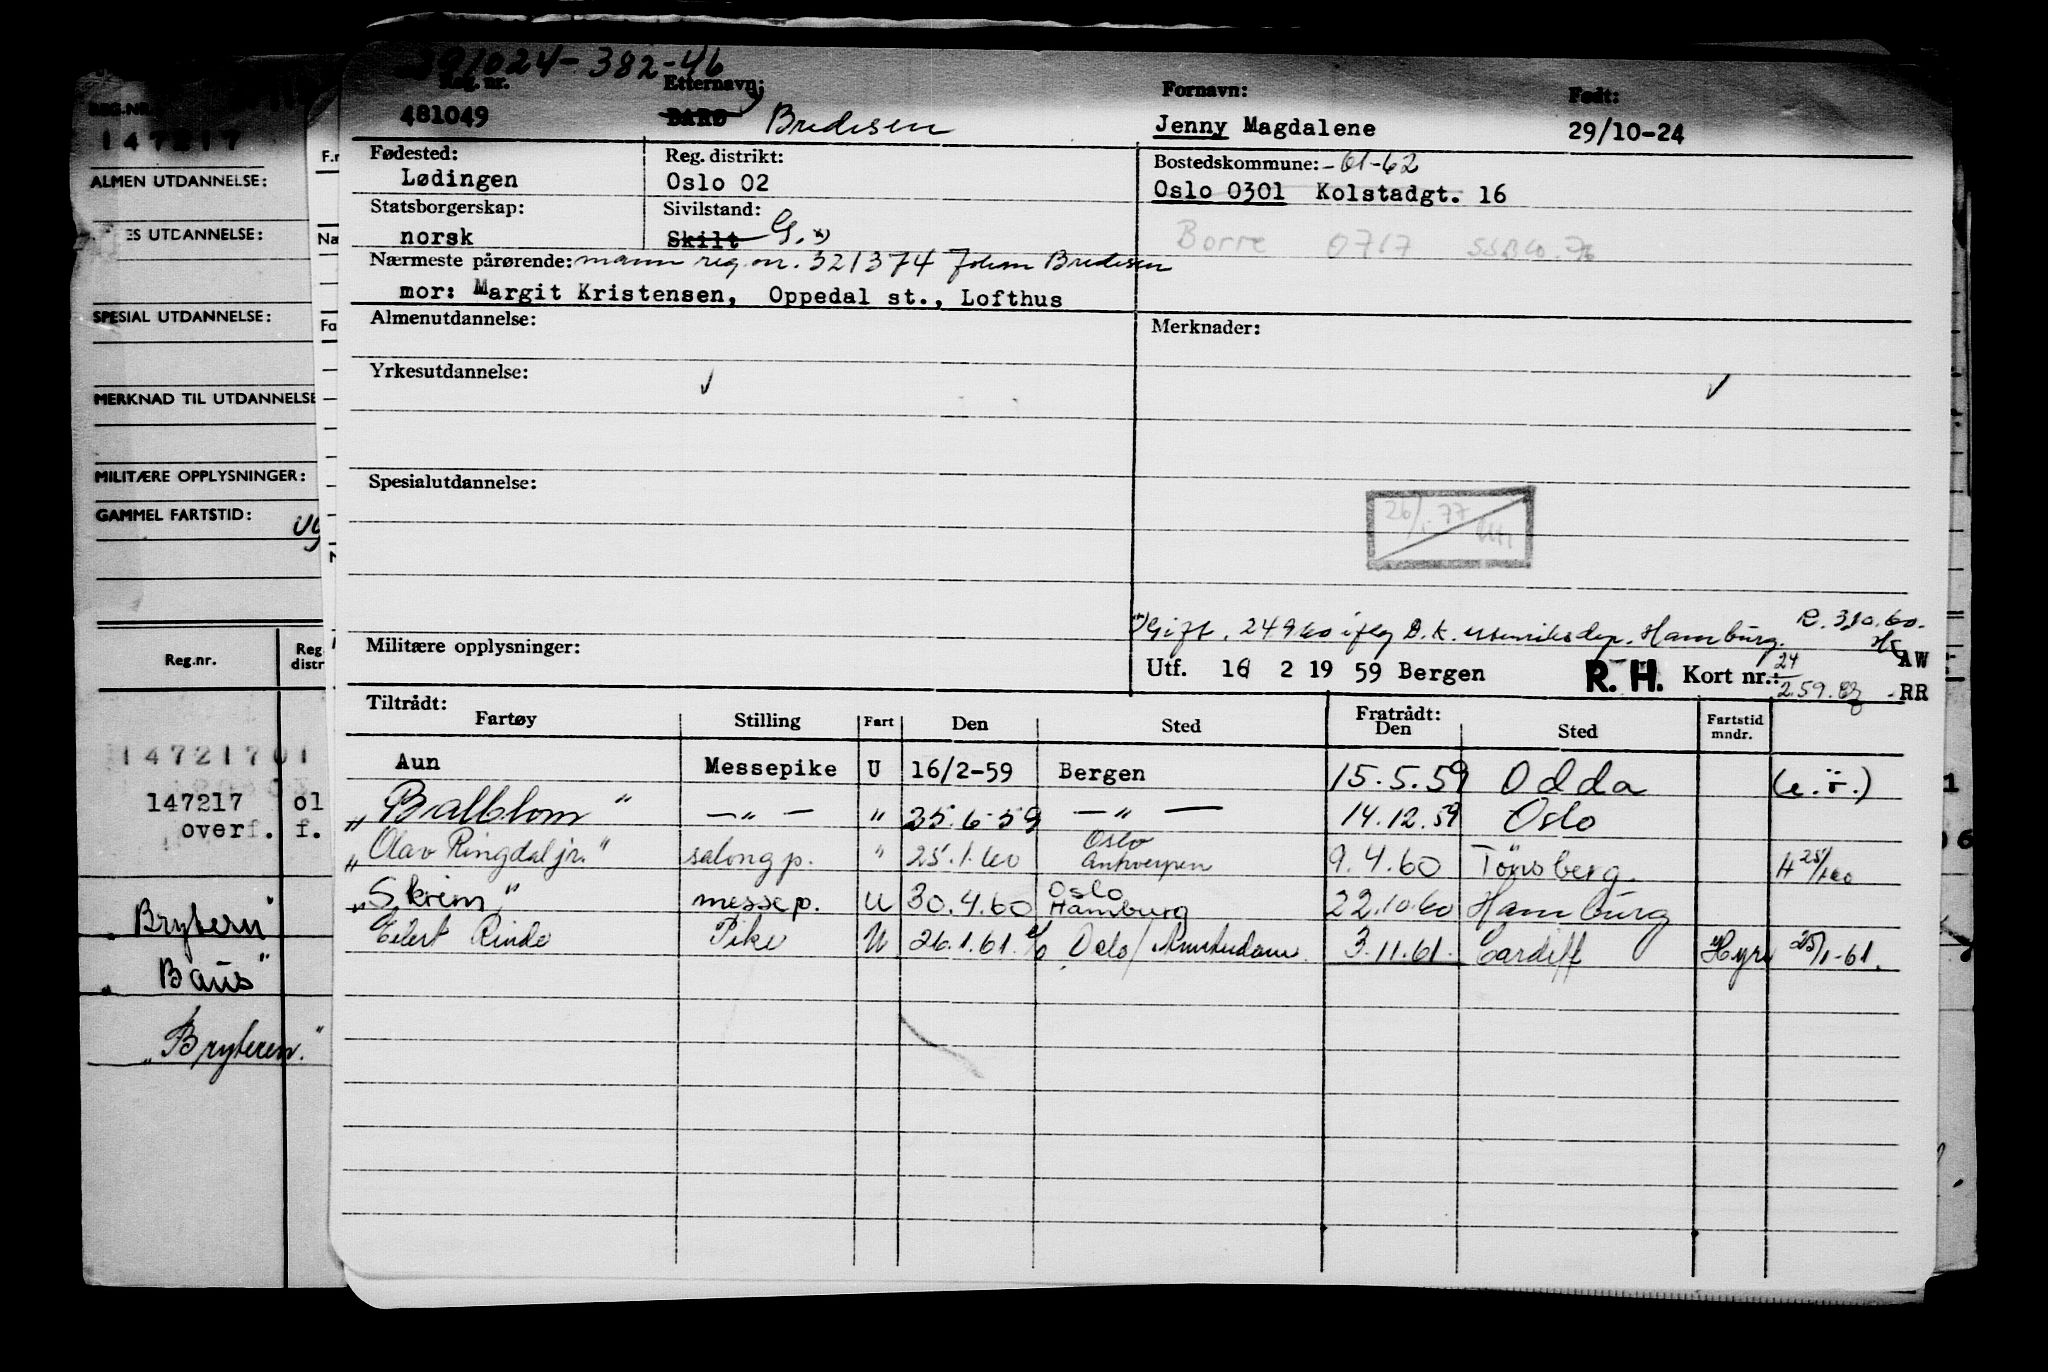 291024-382-46
Reg. nr. Etternavn: Fornavn: Født:
481049 BARØ Bredesen Jenny Magdalene 29/10-24
Fødested: Reg. distrikt: Bostedskommune: -61-62
Lødingen Oslo 02 Oslo 0301 Kolstadgt. 16
Statsborgerskap: Sivilstand:
norsk Skilt G. *) Borre 0717
Nærmeste pårørende: mann reg.nr. 321374 Johan Bredesen
mor: Margit Kristensen, Oppedal st., Lofthus
Almenutdannelse: Merknader:
Yrkesutdannelse:
Spesialutdannelse:
26/1 77
*) Gift. 24960 iflg D.K. utenriksdep. Hamburg. R. 3.10.60.
Militære opplysninger: HS AW
Utf. 16 2 19 59 Bergen R. H. Kort nr.: 24/2 59. RR
Tiltrådt: Fratrådt:
Fartøy Stilling Fart Den Sted Den Sted Fartstid mndr.
Aun Messepike U 16/2-59 Bergen 15.5.59 Odda (e.r.)
"Bralblom" — " — " 25.6.59 — " — 14.12.59 Oslo
"Olav Ringdal jr." salongp. " 25.1.60 Oslo Antwerpen 9.4.60 Tönsberg. H 25/1.60
"Skrim" messep. U 30.4.60 Oslo Hamburg 22.10.60 Hamburg
Eilert Rinde Pike U 26.1.61. Oslo/Amsterdam. 3.11.61. Cardiff Hyre 25/1-61.
REG.NR.
147217
ALMEN UTDANNELSE:
ES UTDANNELSE:
SPESIAL UTDANNELSE:
MERKNAD TIL UTDANNELSE
MILITÆRE OPPLYSNINGER:
GAMMEL FARTSTID:
Reg.nr. Reg distr
14721701
147217 01
overf. f.
"Brytern"
"Baus"
"Bryteren."